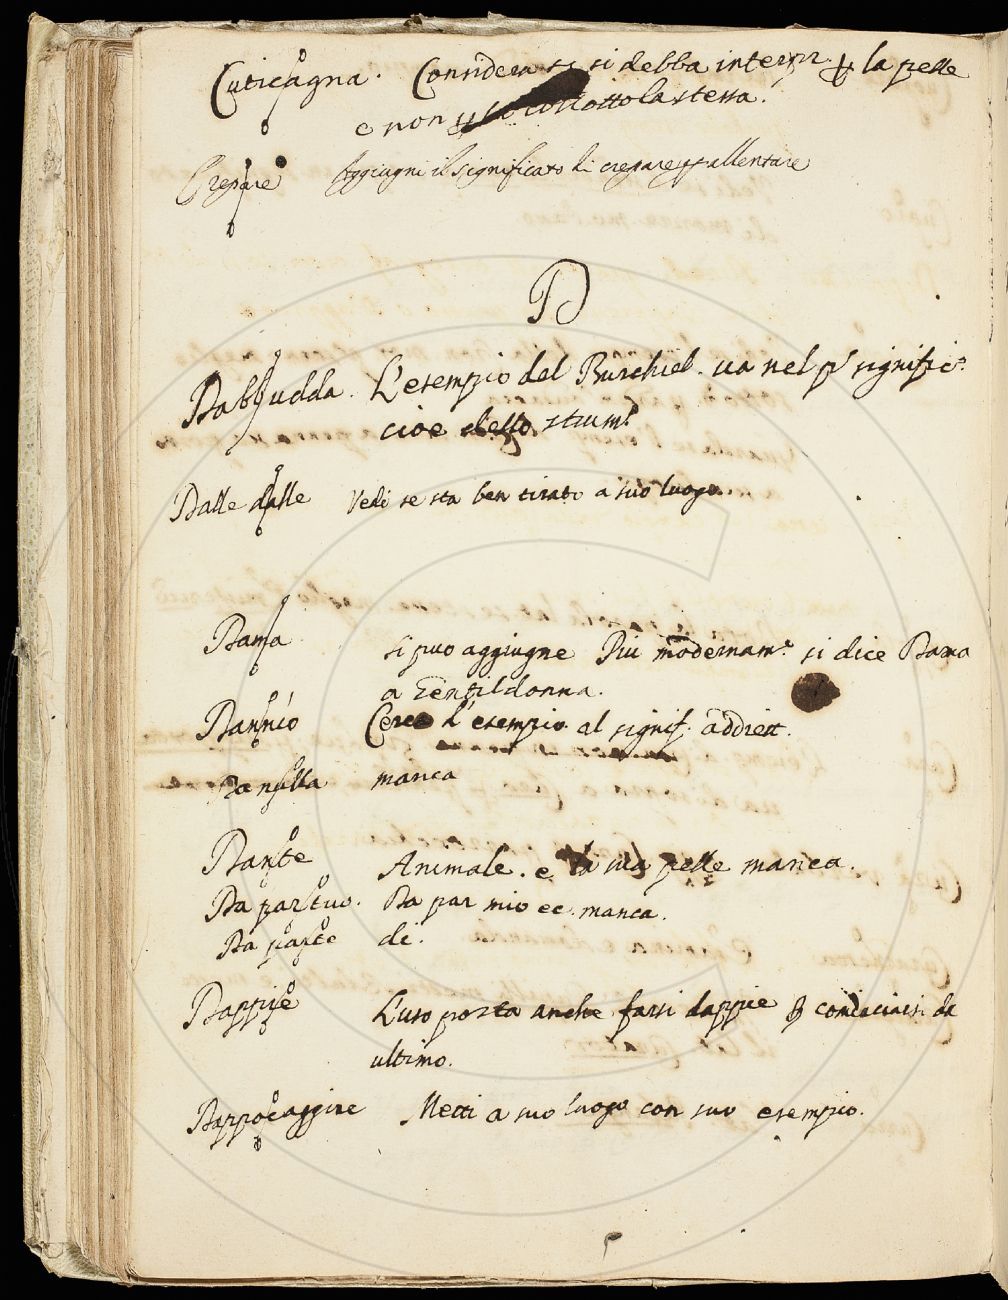 Cuticagna. Considera se si debba interpr. p la pelle
e non p lo collottola stessa.
Crepare Aggiugni il significato di crepare p allentare
D
Dabbudda. L'esempio del Burchiel. va nel p.º signific.º
cioè dello strum.º
Dalle dalle Vedi se sta ben tirato a suo luogo.
Dama si puo aggiugne Piu modernam.e si dice Dama
a Gentildonna.
Dannio Cerca l'esempio al signif. addiett.
Danella manca
Dante Animale. e la sua pelle manca.
Da par tuo. Da par mio ec. manca.
Da parte di.
Dappiè L'uso porta anche farsi dappiè p cominciarsi da
ultimo.
Dappocaggine Metti a suo luogo con suo esempio.